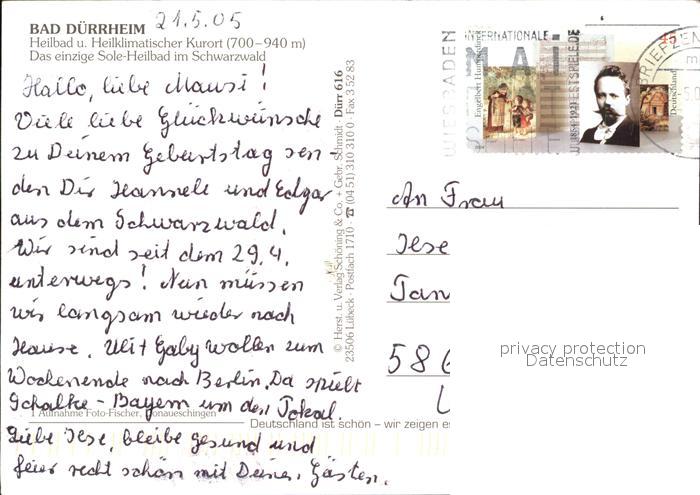 21.5.05
BAD DÜRRHEIM
Heilbad u. Heilklimatischer Kurort (700–940 m)
Das einzige Sole-Heilbad im Schwarzwald
Hallo, liebe Mausi!
Viele liebe Glückwünsche
zu Deinem Geburtstag sen-
den Dir Hannele und Edgar
aus dem Schwarzwald.
Wir sind seit dem 29.4.
unterwegs! Nun müssen
wir langsam wieder nach
Hause. Ulit Gaby wollen zum
Wochenende nach Berlin. Da spielt
Schalke - Bayern um den Pokal.
1 Aufnahme Foto-Fischer, Donaueschingen
Liebe Ilse, bleibe gesund und
feier recht schön mit Deinen Gästen.
© Herst. u. Verlag Schöning & Co. + Gebr. Schmidt · Dürr 616
23506 Lübeck · Postfach 1710 · ☎ (04 51) 310 310 · Fax 3 52 83
Deutschland ist schön – wir zeigen es
WIESBADEN
INTERNATIONALE
MAI
FESTSPIELE.DE
BRIEFZEN
Engelbert Humperdinck
1854-1921
45
Deutschland
An Frau
Ilse
Tan
58
privacy protection
Datenschutz